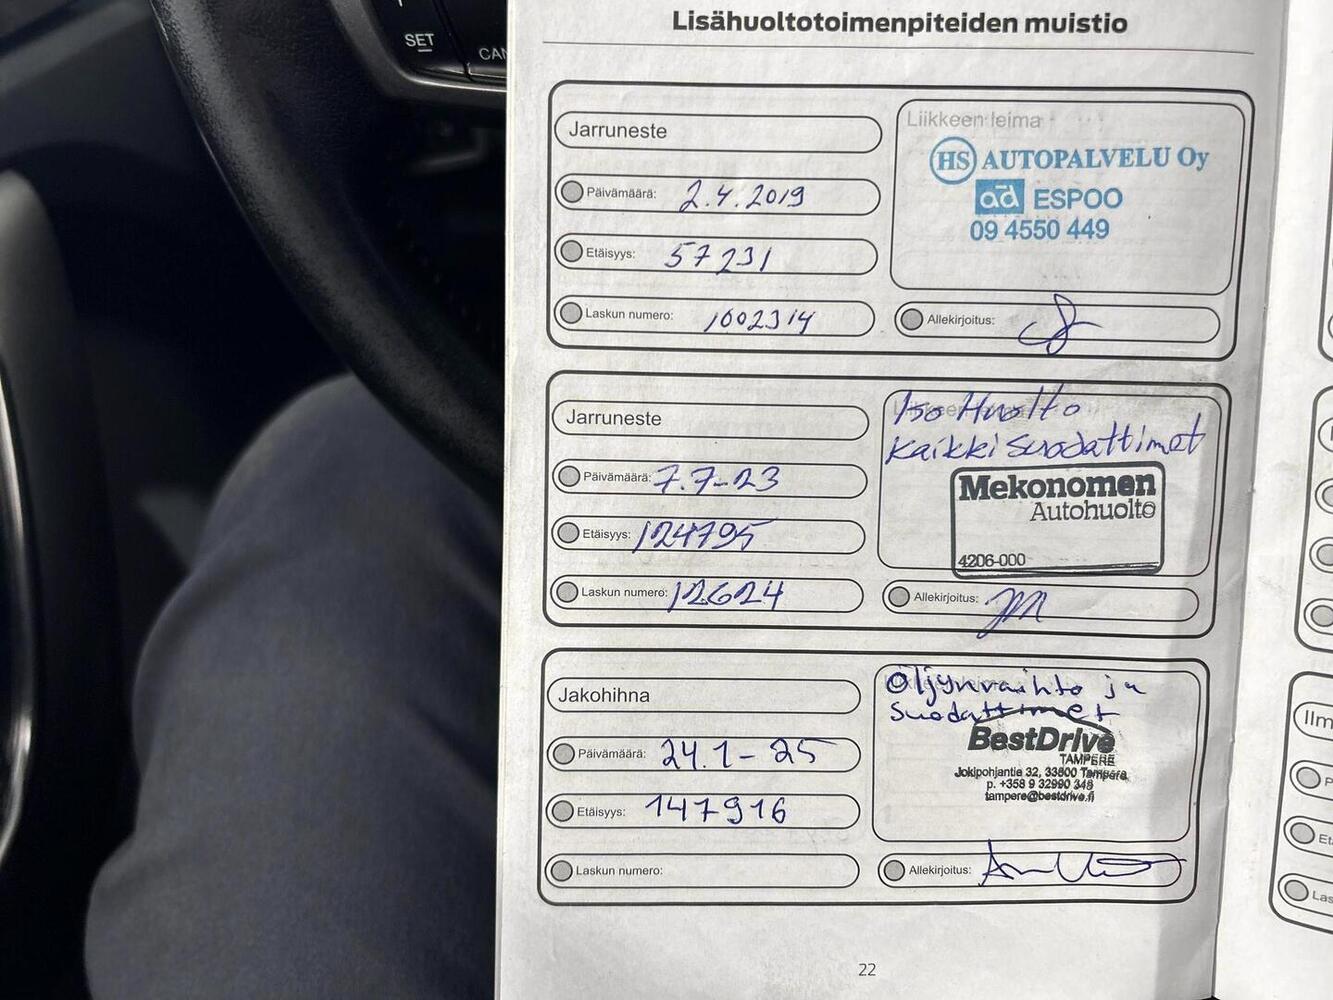 SET
CAN
Lisähuoltotoimenpiteiden muistio
Jarruneste
Päivämäärä: 2.4.2019
Etäisyys: 57231
Laskun numero: 1602314
Liikkeen leima
HS AUTOPALVELU Oy
ad ESPOO
09 4550 449
Allekirjoitus:
Jarruneste
Päivämäärä: 7.7-23
Etäisyys: 124795
Laskun numero: 12624
Iso Huolto
kaikki suodattimet
Mekonomen
Autohuolto
4206-000
Allekirjoitus:
Jakohihna
Päivämäärä: 24.1-25
Etäisyys: 147916
Laskun numero:
Öljynvaihto ja
suodattimet
BestDrive
TAMPERE
Jokipohjantie 32, 33800 Tampere
p. +358 9 32990 348
tampere@bestdrive.fi
Allekirjoitus:
22
Ilm
Et
Las